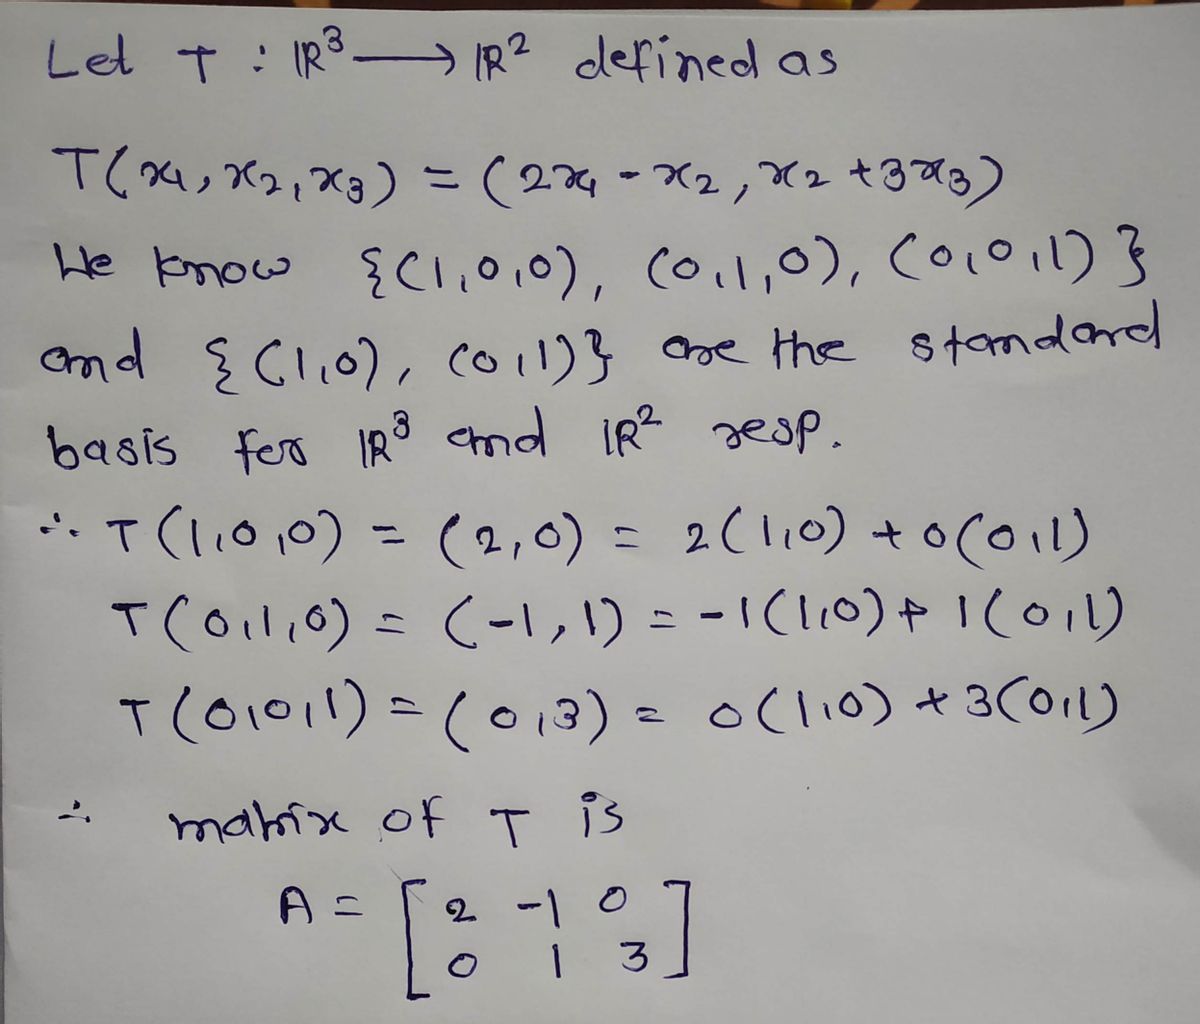 Let T : ℝ³ → ℝ² defined as
T(x₁, x₂, x₃) = (2x₁ - x₂, x₂ + 3x₃)
We know {(1,0,0), (0,1,0), (0,0,1)}
and {(1,0), (0,1)} are the standard
basis for ℝ³ and ℝ² resp.
∴ T(1,0,0) = (2,0) = 2(1,0) + 0(0,1)
T(0,1,0) = (-1,1) = -1(1,0) + 1(0,1)
T(0,0,1) = (0,3) = 0(1,0) + 3(0,1)
∴ matrix of T is
A = [ 2 -1 0
0 1 3 ]